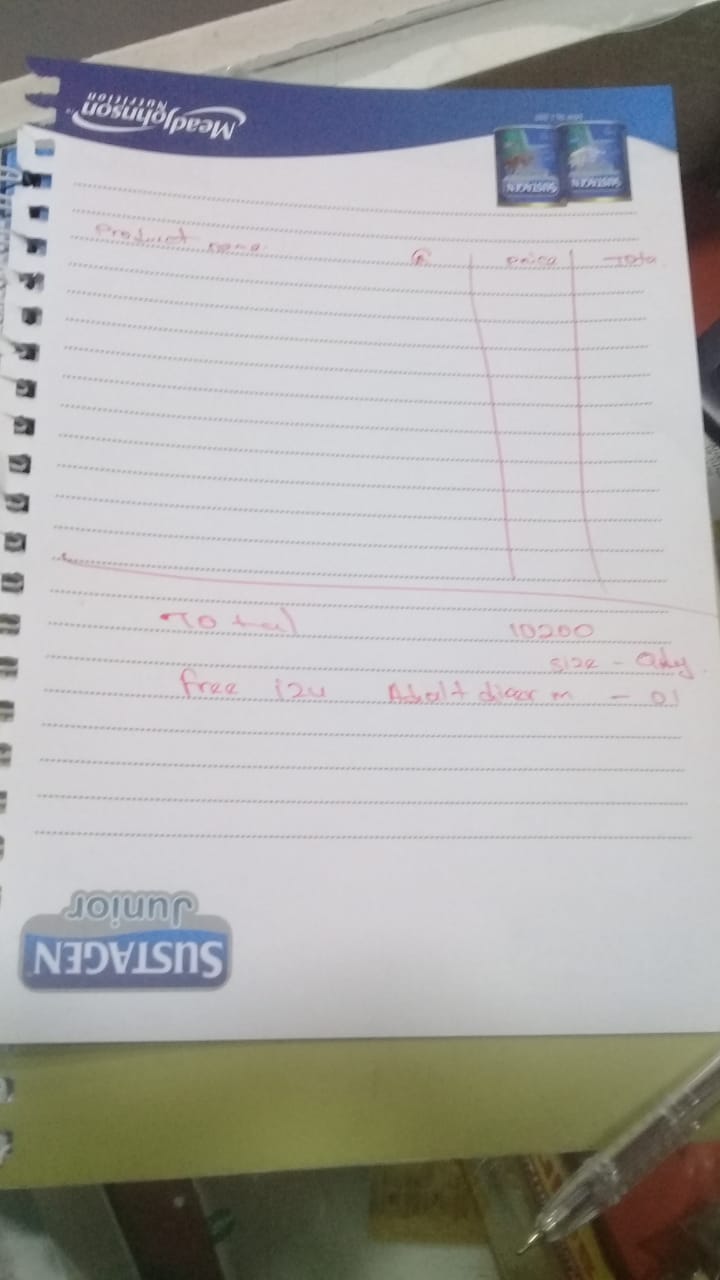 MeadJohnson
Nutrition
SUSTAGEN SUSTAGEN
Product name Price Tota
Total 10200
Size - Qty
free i2u Adalt dicer m - 01
SUSTAGEN
Junior